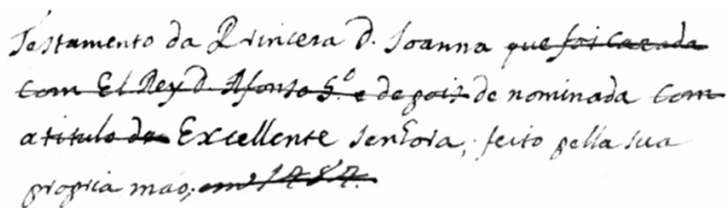 Testamento da Princeza D. Joanna que foi cazada
com El Rey D. Afonso 5.º e depois de nominada com
a titulo de Excellente Senhora, feito pella sua
propria mão, em 1484.